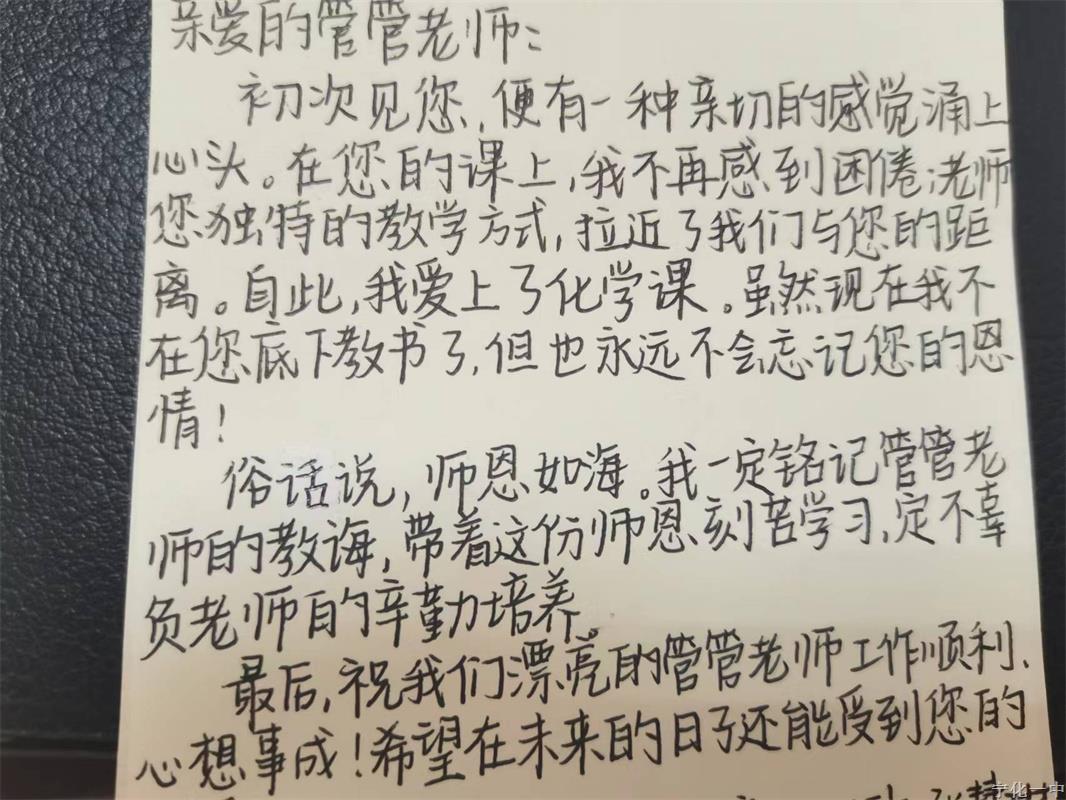 亲爱的管管老师：
初次见您，便有一种亲切的感觉涌上
心头。在您的课上，我不再感到困倦；老师
您独特的教学方式，拉近了我们与您的距
离。自此，我爱上了化学课。虽然现在我不
在您底下教书了，但也永远不会忘记您的恩
情！
俗话说，师恩如海。我一定铭记管管老
师的教诲，带着这份师恩刻苦学习，定不辜
负老师的辛勤培养。
最后，祝我们漂亮的管管老师工作顺利、
心想事成！希望在未来的日子还能受到您的
宁化一中